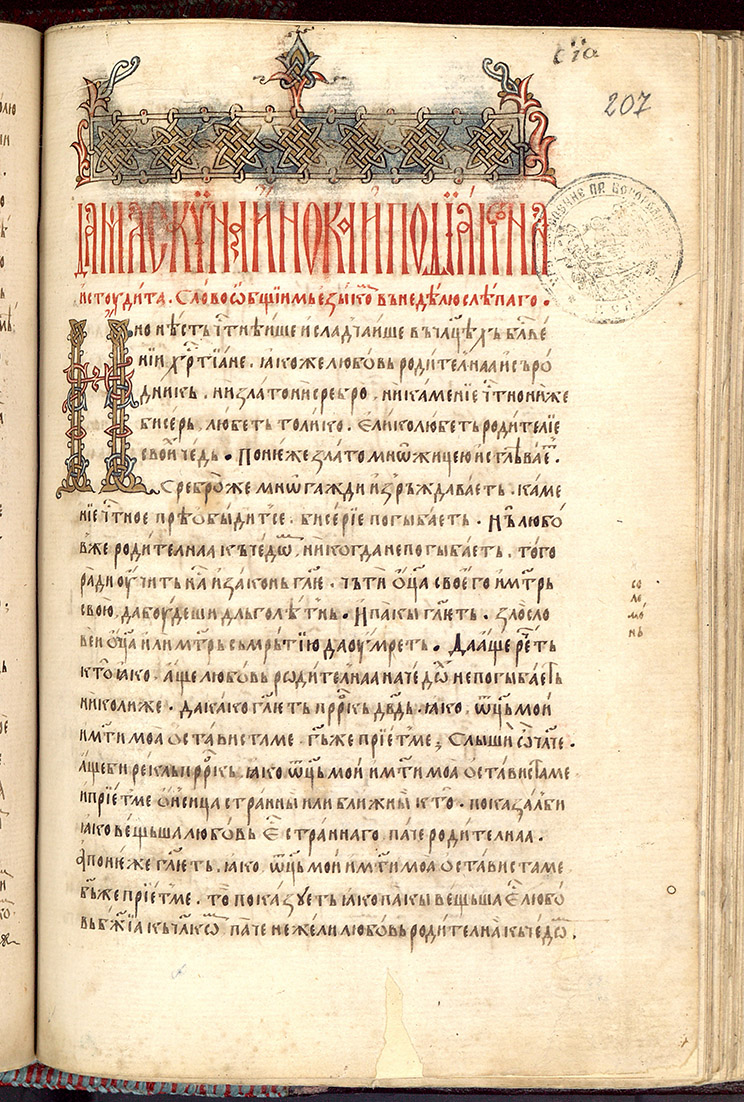 с҃і҃а
207
ДАМАСКѴ́НА И́НОКА И ПОДЇА́КѠНА
и стоудита. Сло́во ѻ҆́бщїимь е҆зы́кѡ҇ въ недѣ́лю слѣ́паго.
Но нѣ́сть ч҇тнѣ́ише и сладча́ише въ чл҃цѣхъ бл҃ве́
нїи хр҇тїа́не, ꙗ҆коже любо́вь роди́телнаа и съро́
дникь. ни зла́то ни сребро, ни ка́менїе ч҇тно ниже
би́серь, лю́беть толи́ко. Е҆ли́ко любеть роди́телїе
свои҆̀ че́дь. Поне́же зла́то мнѡ́жицею и҆стлѣва́е҇т.
Сребро́ же мнѡ́гажди и҆зръ́ждаваеть. ка́ме
нїе ч҇тное прѣѡбы́дит се. би́серїе погыбаеть. Нь̏ любо́
в же роди́телнаа къ че́дѡ҇, никогда не погы́баеть. то́го
ра́ди оу҆́чить на҇ и҆ зако́нь гл҃ѥ. чъти ѻ҆ц҃а свое́го и҆ мт҃рь
свою̀, да бо́удеши дльголѣ́тнь. И҆ па́кы гл҃еть. зло́сло
веи ѻ҆ц҃а и҆ли мт҃рь съмрътїю да оу҆́мреть. Да а҆́ще рѐ҇ть
кто̀ ꙗ҆ко. а҆́ще любо́вь роди́телнаа на че́дѡ҇ не погы́баеть
николи́же. да ка́ко гл҃еть прр҃кь дв҃дь. ꙗ҆ко, ѻ҆ц҃ь мо́и
и҆ мт҃и моа̀ ѻ҆ста́виста ме. г҃ь же прїе́т ме; Слы́ши ѽ чл҃че.
а҆́ще би ре́кль прр҃кь ꙗ҆ко ѻ҆ц҃ь мо́и и҆ мт҃и моа̀ ѻ҆ста́виста ме
и прїе́т ме ѻ҆́нсица стра́нны или бли́жны кто̀. показа́ль би
ꙗ҆ко ве́щьша любо́вь е҇ стра́ннаго па́че роди́телнаа.
А҆ поне́же гл҃еть. ꙗ҆ко, ѻ҆ц҃ь мо́и и҆ мт҃и моа̀ ѻ҆ста́виста ме
г҃ь же прїе́т ме. то̀ пока́зуеть ꙗ҆ко па́кы ве́щьша е҇ любо́
вь бж҃їа къ чл҃кѡ҇м па́че не́жели любо́вь роди́телна къ че́дѡ҇м.
со
ло
мѡ́
нь